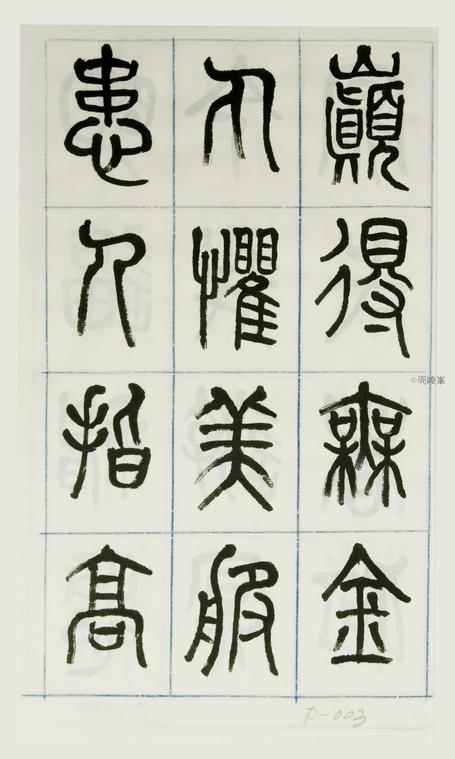 巔得無金
丸懼美服
患人指高
©周峻峯
D-003